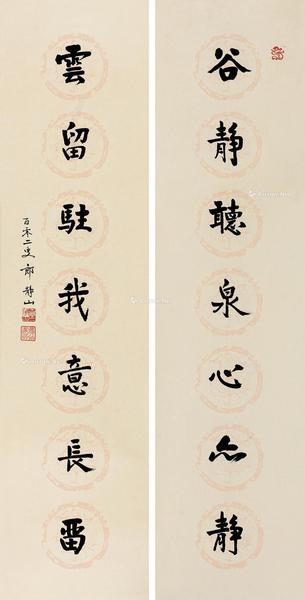 谷靜聽泉心亦靜
雲留駐我意長畱
百零二叟 郎靜山